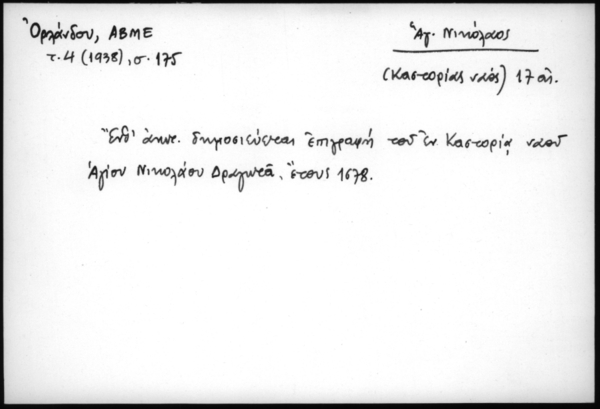 Ὀρλάνδου, ΑΒΜΕ
τ. 4 (1938), σ. 175
Ἅγ. Νικόλαος
(Καστορίας ναός) 17 αἰ.
Ἔνθ' ἀνωτ. δημοσιεύεται ἐπιγραφή τοῦ ἐν Καστορίᾳ ναοῦ
Ἁγίου Νικολάου Δραγωτᾶ, ἔτους 1678.